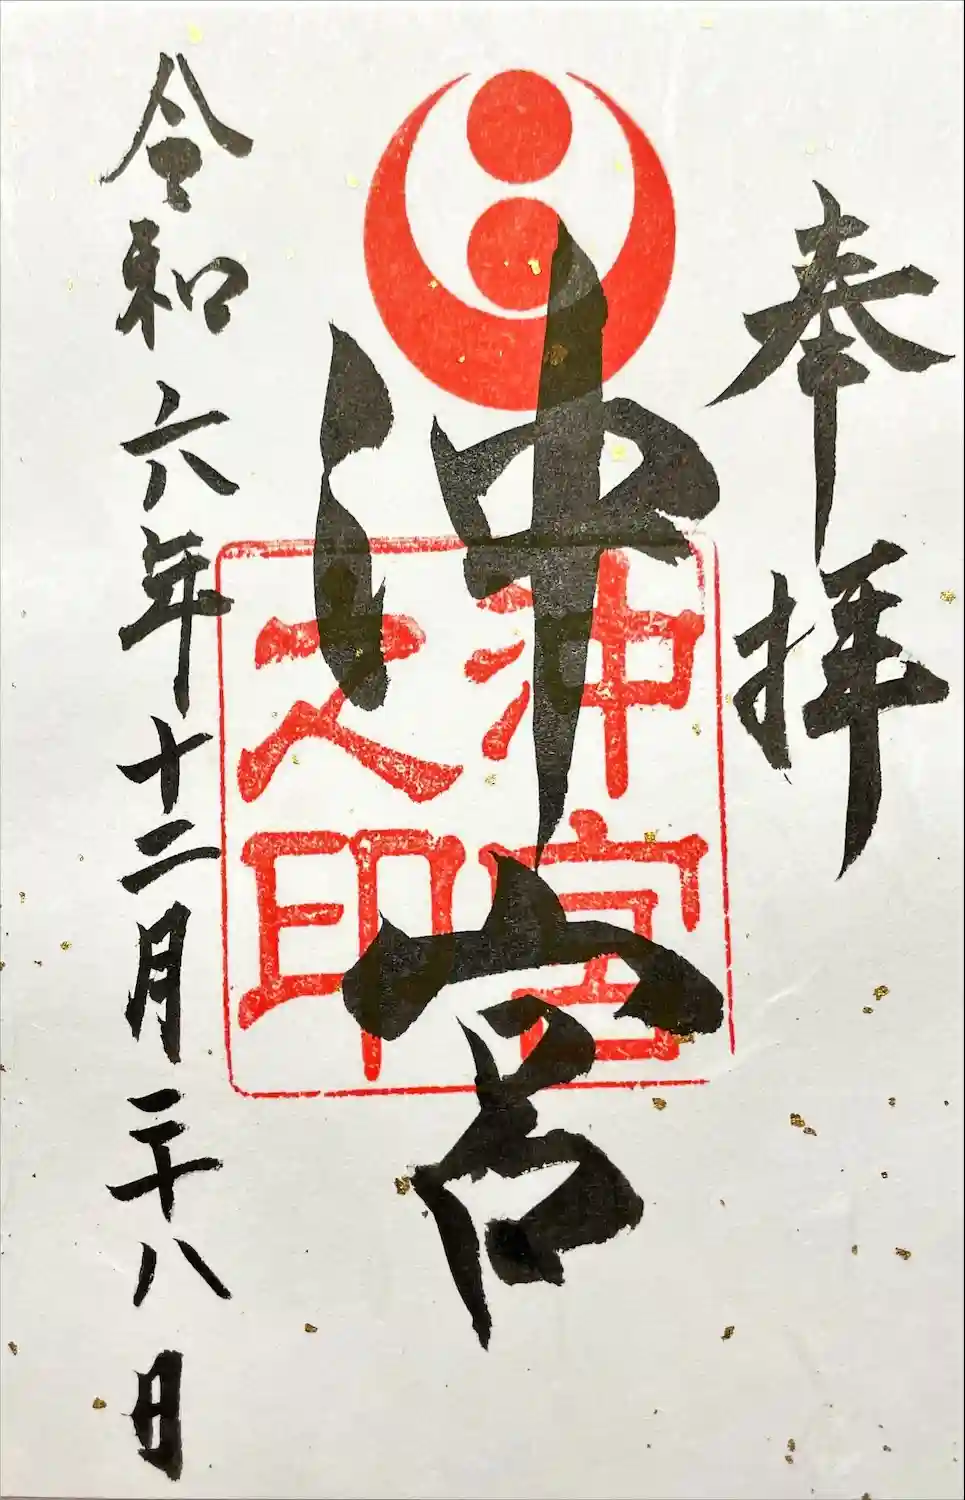 奉拝
沖宮
沖宮
之印
令和六年十二月二十八日